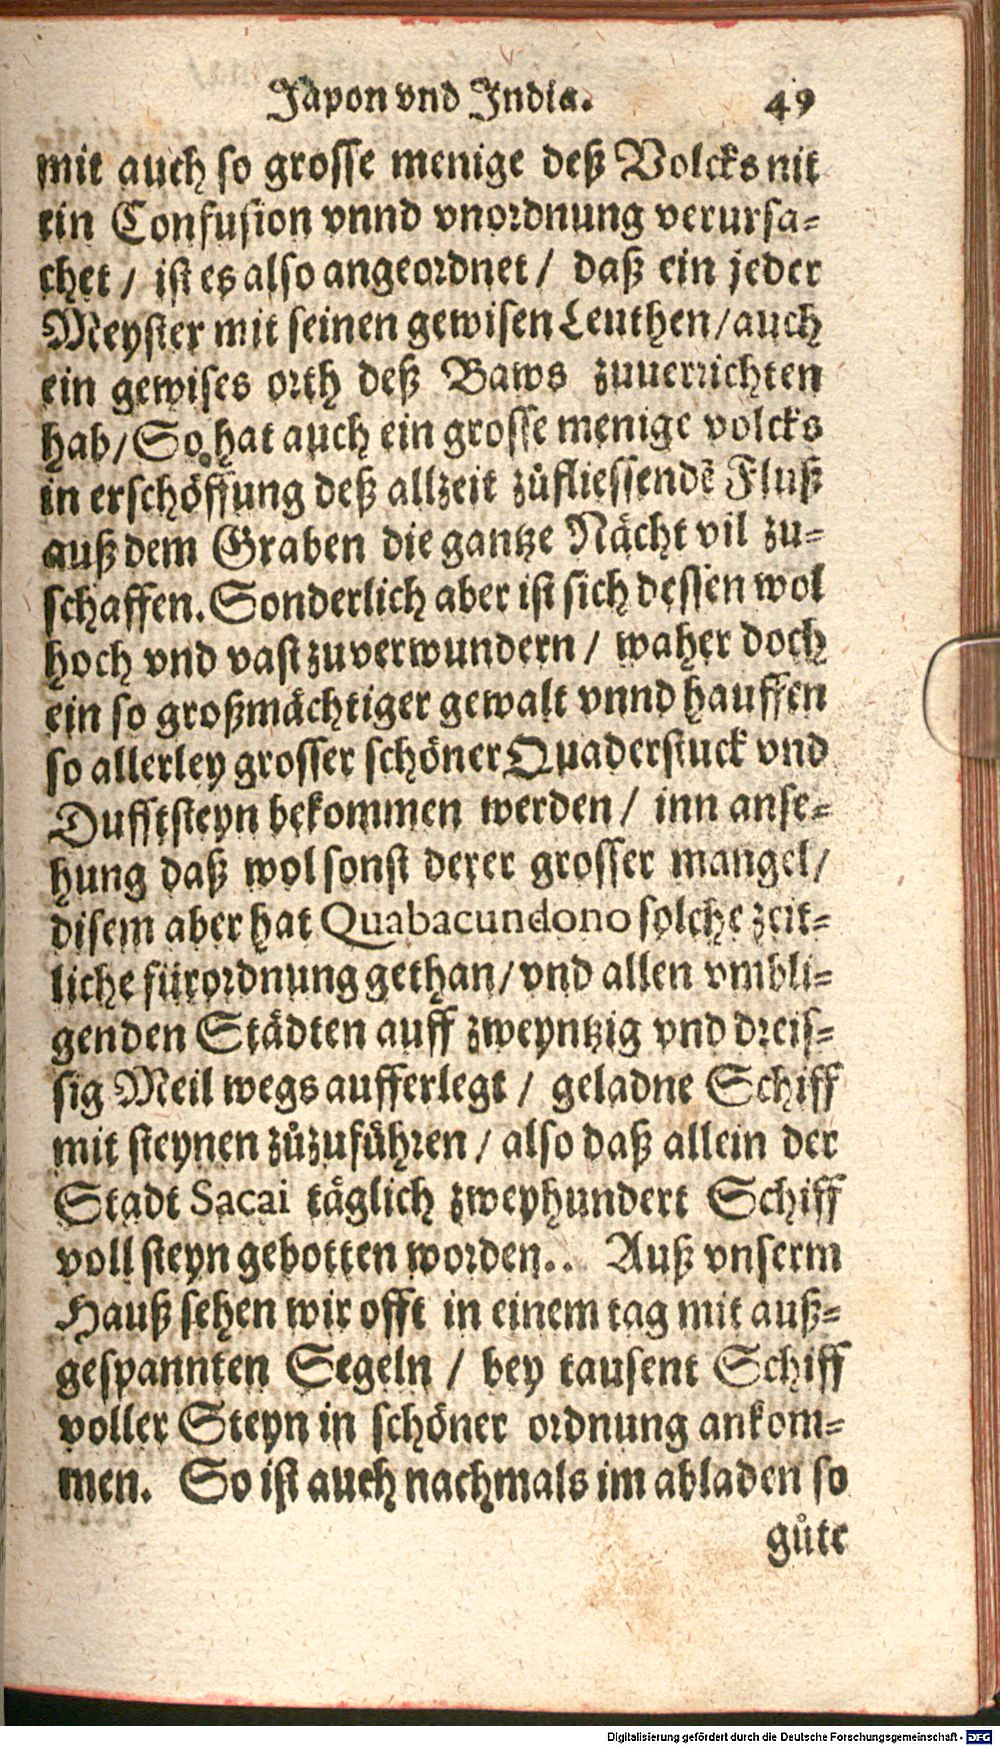 Japon vnd India. 49
mit auch so grosse menige deß Volcks nit
ein Confusion vnnd vnordnung verursa-
chet / ist es also angeordnet / daß ein jeder
Meyster mit seinen gewisen Leuthen / auch
ein gewises orth deß Baws zuuerrichten
hab / So hat auch ein grosse menige volcks
in erschöffung deß allzeit zůfliessendē Fluß
auß dem Graben die gantze Nächt vil zu-
schaffen. Sonderlich aber ist sich dessen wol
hoch vnd vast zuverwundern / waher doch
ein so großmächtiger gewalt vnnd hauffen
so allerley grosser schöner Quaderstuck vnd
Dufftsteyn bekommen werden / inn anse-
hung daß wol sonst derer grosser mangel /
disem aber hat Quabacundono solche zeit-
liche fürordnung gethan / vnd allen vmbli-
genden Städten auff zweyntzig vnd dreis-
sig Meil wegs aufferlegt / geladne Schiff
mit steynen zůzuführen / also daß allein der
Stadt Sacai täglich zweyhundert Schiff
voll steyn gebotten worden.. Auß vnserm
Hauß sehen wir offt in einem tag mit auß-
gespannten Segeln / bey tausent Schiff
voller Steyn in schöner ordnung ankom-
men. So ist auch nachmals im abladen so
gůte
Digitalisierung gefördert durch die Deutsche Forschungsgemeinschaft - DFG